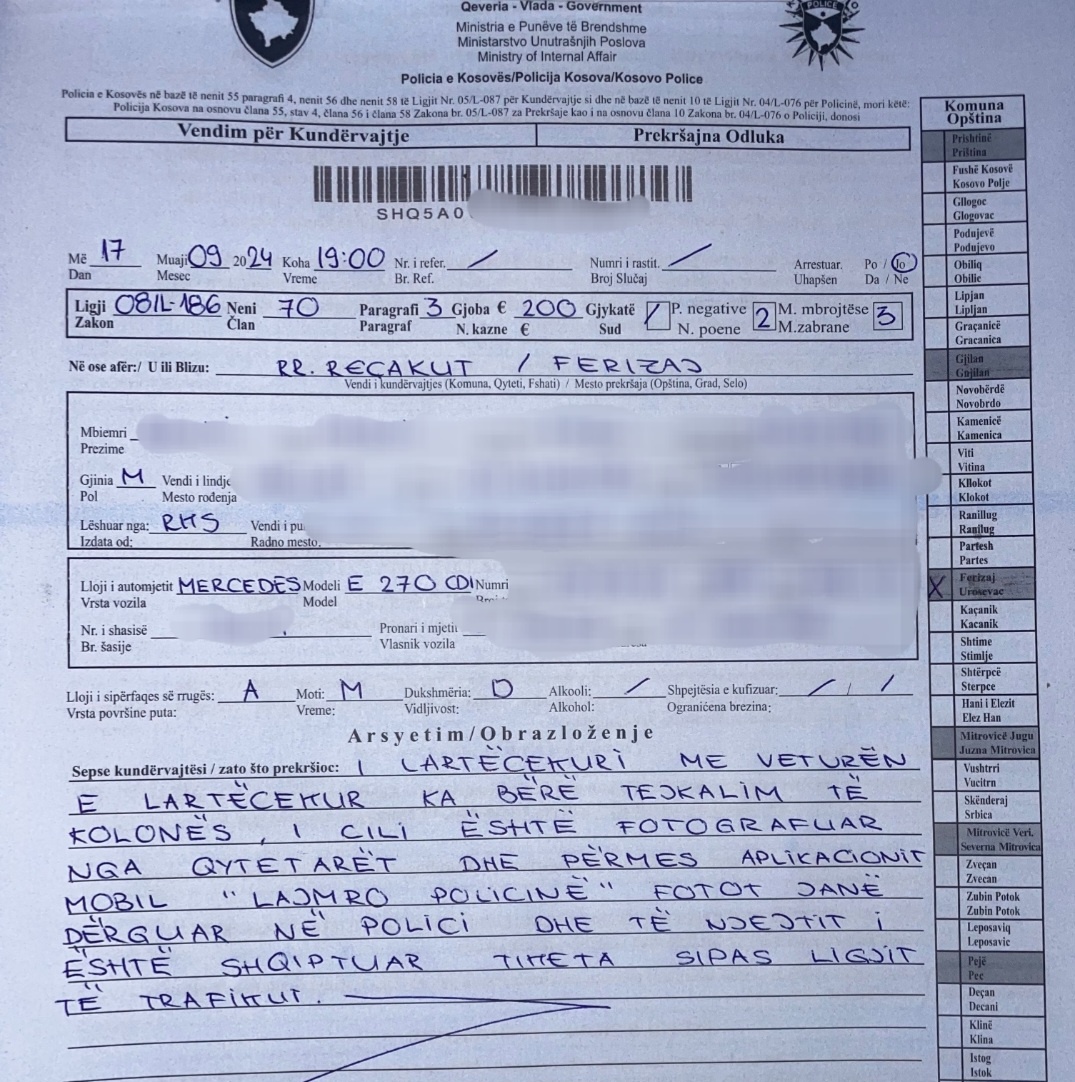 Qeveria - Vlada - Government
Ministria e Punëve të Brendshme
Ministarstvo Unutrašnjih Poslova
Ministry of Internal Affair
Policia e Kosovës/Policija Kosova/Kosovo Police
POLICE
Policia e Kosovës në bazë të nenit 55 paragrafi 4, nenit 56 dhe nenit 58 të Ligjit Nr. 05/L-087 për Kundërvajtje si dhe në bazë të nenit 10 të Ligjit Nr. 04/L-076 për Policinë, mori këtë:
Policija Kosova na osnovu člana 55, stav 4, člana 56 i člana 58 Zakona br. 05/L-087 za Prekršaje kao i na osnovu člana 10 Zakona br. 04/L-076 o Policiji, donosi
Vendim për Kundërvajtje Prekršajna Odluka
SHQ5A0
Më 17 Muaji 09 2024 Koha 19:00 Nr. i refer. / Numri i rastit. / Arrestuar. Po / Jo
Dan Mesec Vreme Br. Ref. Broj Slučaj Uhapšen Da / Ne
Ligji 08/L-186 Neni 70 Paragrafi 3 Gjoba € 200 Gjykatë / P. negative 2 M. mbrojtëse 3
Zakon Član Paragraf N. kazne € Sud N. poene M.zabrane
Në ose afër:/ U ili Blizu: RR. REÇAKUT / FERIZAJ
Vendi i kundërvajtjes (Komuna, Qyteti, Fshati) / Mesto prekršaja (Opština, Grad, Selo)
Mbiemri
Prezime
Gjinia M Vendi i lindje
Pol Mesto rođenja
Lëshuar nga: RKS Vendi i pu
Izdata od: Radno mesto.
Lloji i automjetit MERCEDES Modeli E 270 CDI Numri
Vrsta vozila Model
Nr. i shasisë Pronari i mjeti
Br. šasije Vlasnik vozila
Lloji i sipërfaqes së rrugës: A Moti: M Dukshmëria: D Alkooli: / Shpejtësia e kufizuar: / / /
Vrsta površine puta: Vreme: Vidljivost: Alkohol: Ograničena brezina:
Arsyetim/Obrazloženje
Sepse kundërvajtësi / zato što prekršioc: I LARTËCEKURI ME VETURËN
E LARTËCEKUR KA BËRË TEJKALIM TË
KOLONËS, I CILI ËSHTË FOTOGRAFUAR
NGA QYTETARËT DHE PËRMES APLIKACIONIT
MOBIL "LAJMRO POLICINË" FOTOT JANË
DËRGUAR NË POLICI DHE TË NJEJTIT I
ËSHTË SHQIPTUAR TIKETA SIPAS LIGJIT
TË TRAFIKUT.
Komuna
Opština
Prishtinë
Priština
Fushë Kosovë
Kosovo Polje
Gllogoc
Glogovac
Podujevë
Podujevo
Obiliq
Obilic
Lipjan
Lipljan
Graçanicë
Gracanica
Gjilan
Gnjilan
Novobërdë
Novobrdo
Kamenicë
Kamenica
Viti
Vitina
Kllokot
Klokot
Ranillug
Ranilug
Partesh
Partes
X Ferizaj
Urosevac
Kaçanik
Kacanik
Shtime
Stimlje
Shtërpcë
Sterpce
Hani i Elezit
Elez Han
Mitrovicë Jugu
Juzna Mitrovica
Vushtrri
Vucitrn
Skënderaj
Srbica
Mitrovicë Veri.
Severna Mitrovica
Zveçan
Zvecan
Zubin Potok
Zubin Potok
Leposaviq
Leposavic
Pejë
Pec
Deçan
Decani
Klinë
Klina
Istog
Istok